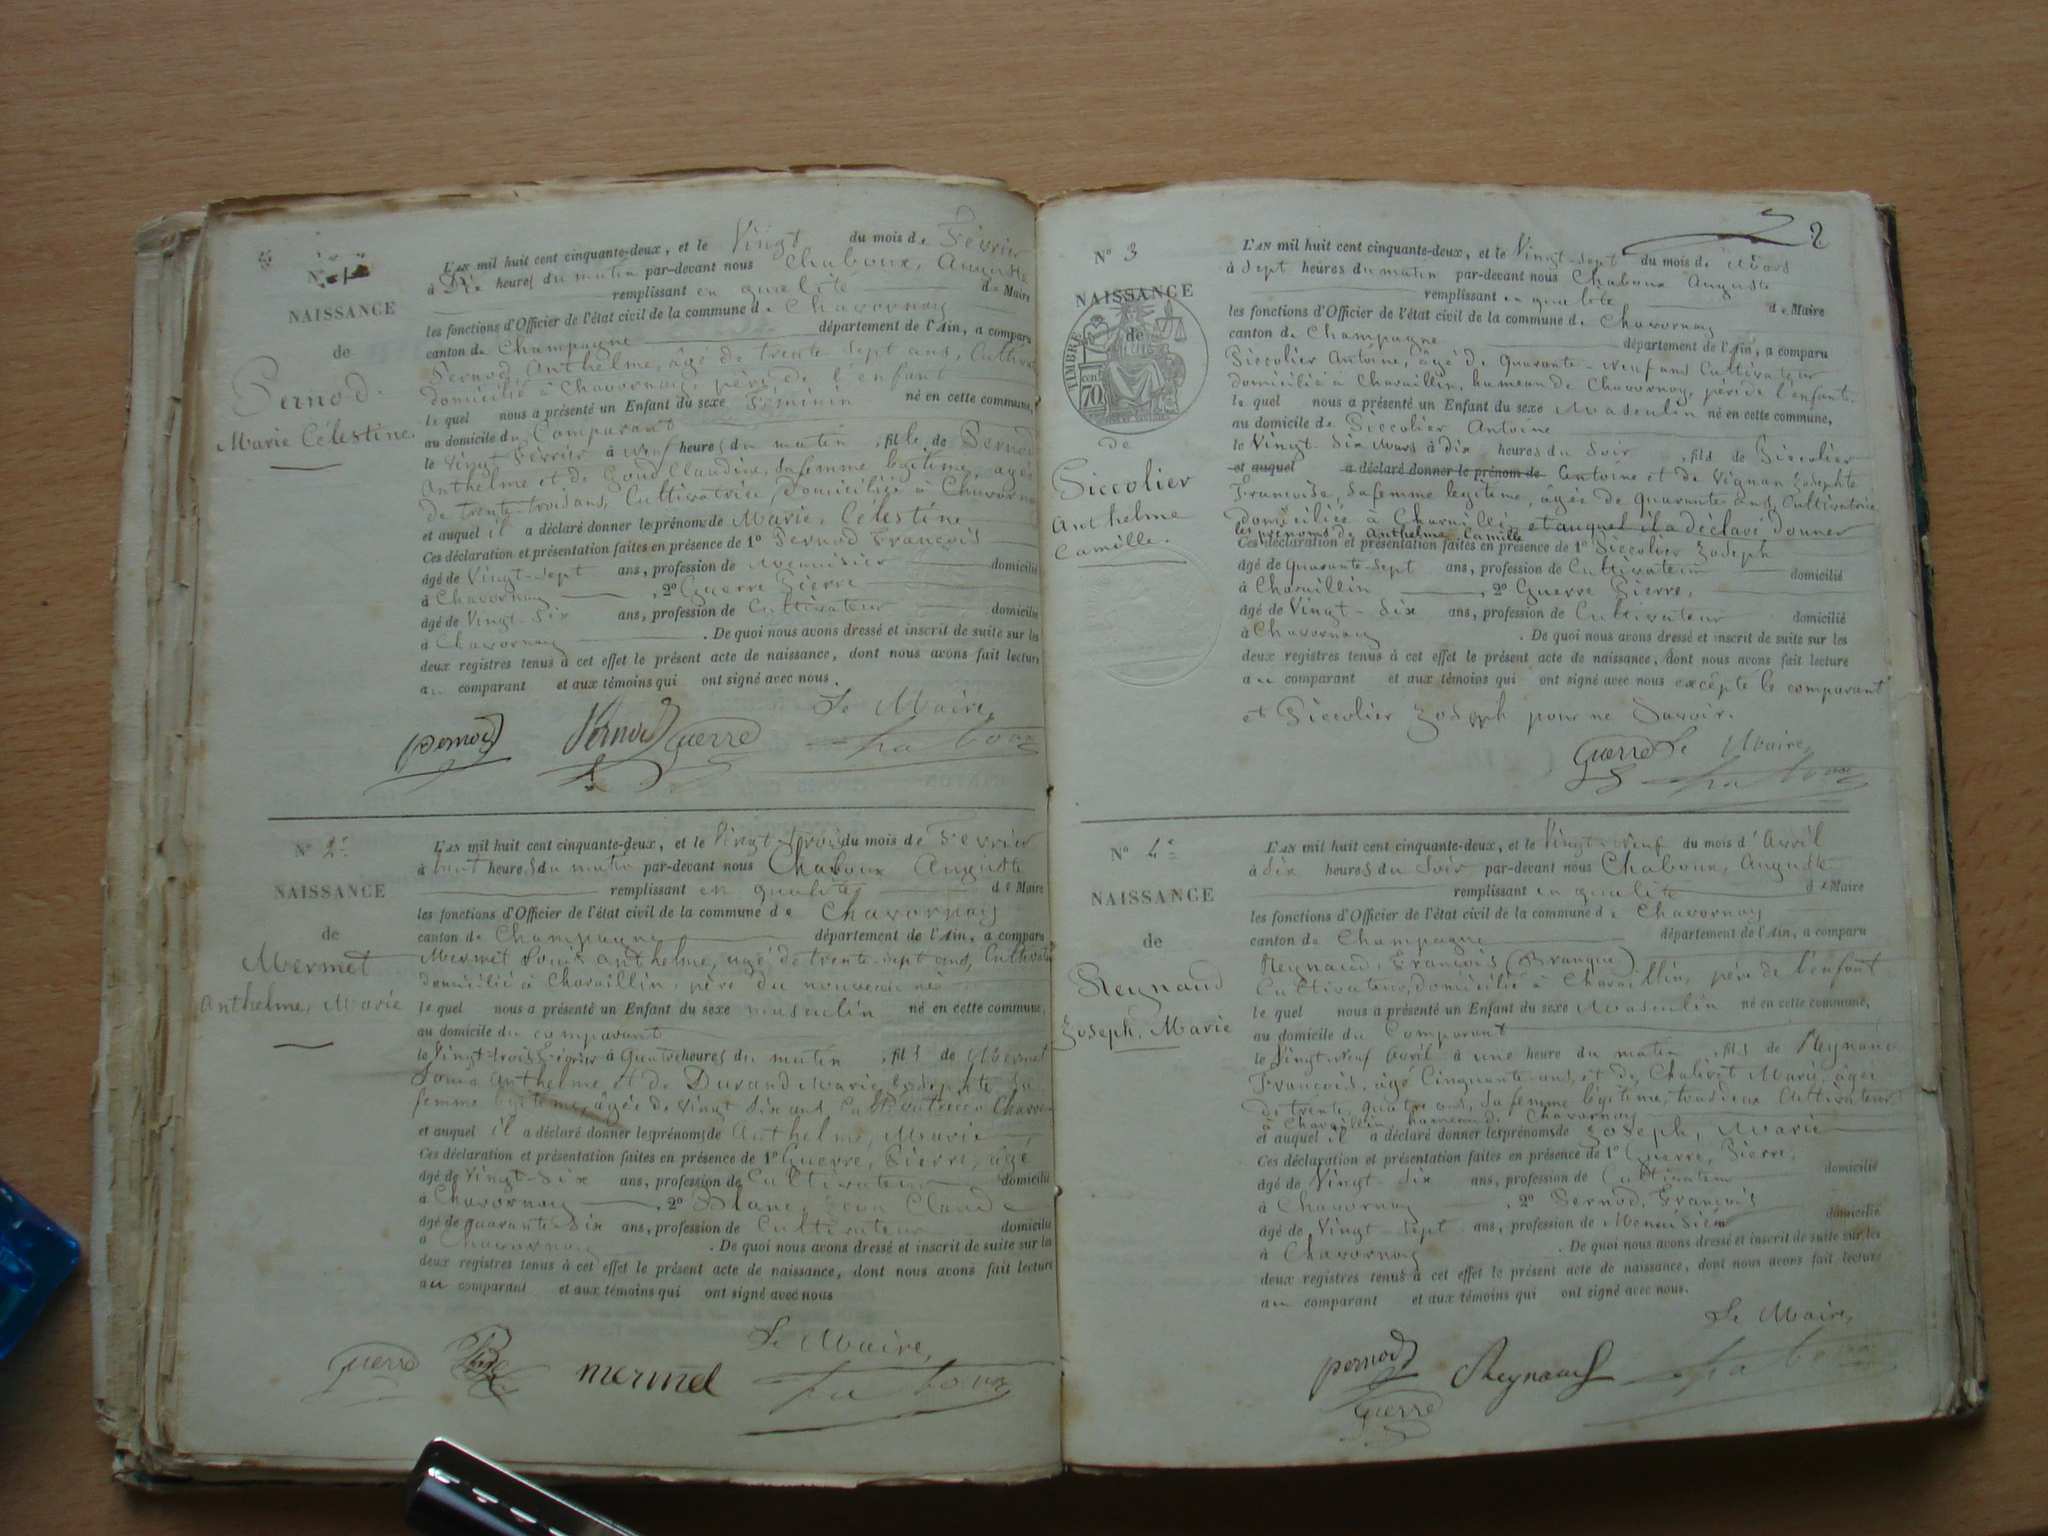 N° 1
NAISSANCE
de
Pernod
Marie Célestine
L'AN mil huit cent cinquante-deux, et le Vingt du mois de Février
à Dix heures du matin par-devant nous Chaboux, Auguste
remplissant en qualité de Maire
les fonctions d'Officier de l'état civil de la commune de Chavornay
canton de Champagne département de l'Ain, a comparu
Pernod Anthelme, âgé de trente sept ans, Cultiva
domicilié à Chavornay, père de l'enfant
le quel nous a présenté un Enfant du sexe Féminin né en cette commune,
au domicile du Comparant
le Vingt Février à neuf heures du matin, fille de Pernod
Anthelme et de Goud Claudine, sa femme légitime, agée
de trente-trois ans, Cultivatrice, domiciliée à Chavorna
et auquel il a déclaré donner les prénoms de Marie, Célestine
Ces déclaration et présentation faites en présence de 1° Pernod François
âgé de Vingt-sept ans, profession de Menuisier domicilié
à Chavornay, 2° Guerre Pierre
âgé de Vingt-Six ans, profession de Cultivateur domicilié
à Chavornay. De quoi nous avons dressé et inscrit de suite sur les
deux registres tenus à cet effet le présent acte de naissance, dont nous avons fait lecture
au comparant et aux témoins qui ont signé avec nous.
Le Maire,
pernod Pernod Guerre Chaboux
N° 2e
NAISSANCE
de
Mermet
Anthelme, Marie
L'AN mil huit cent cinquante-deux, et le Vingt-trois du mois de Février
à huit heures du matin par-devant nous Chaboux Auguste
remplissant en qualité de Maire
les fonctions d'Officier de l'état civil de la commune de Chavornay
canton de Champagne département de l'Ain, a comparu
Mermet Louis Anthelme, agé de trente-sept ans, Cultivate
domicilié à Charaillin, père du nouveau né
le quel nous a présenté un Enfant du sexe masculin né en cette commune,
au domicile du comparant
le Vingt-trois Février à Quatre heures du matin, fils de Mermet
Louis Anthelme et de Durand Marie Josephte sa
femme légitime, âgée de vingt six ans Cultivatrice à Charai
et auquel il a déclaré donner les prénoms de Anthelme, Marie
Ces déclaration et présentation faites en présence de 1° Guerre, Pierre, âgé
âgé de Vingt-Six ans, profession de Cultivateur domicilié
à Chavornay, 2° Blanc, Jean Claude
âgé de quarante-Six ans, profession de Cultivateur domicilié
à Chavornay. De quoi nous avons dressé et inscrit de suite sur les
deux registres tenus à cet effet le présent acte de naissance, dont nous avons fait lecture
au comparant et aux témoins qui ont signé avec nous
Le Maire,
Guerre mermet Chaboux
2
N° 3
NAISSANCE
de
TIMBRE
70 cent
de
Piccolier
Anthelme
Camille.
L'AN mil huit cent cinquante-deux, et le Vingt-sept du mois de Mars
à Sept heures du matin par-devant nous Chaboux Auguste
remplissant en qualité de Maire
les fonctions d'Officier de l'état civil de la commune de Chavornay
canton de Champagne département de l'Ain, a comparu
Piccolier Antoine, âgé de Quarante-neuf ans Cultivateur
domicilié à Charaillin, hameau de Chavornay, père de l'enfant.
le quel nous a présenté un Enfant du sexe Masculin né en cette commune,
au domicile de Piccolier Antoine
le Vingt-Six Mars à dix heures du Soir, fils de Piccolier
et auquel a déclaré donner le prénom de Antoine et de Vignan Josephte
Françoise, sa femme légitime, âgée de Quarante ans, Cultivatrice
domiciliée à Charaillin et auquel il a déclaré donner
les prénoms de Anthelme Camille
Ces déclaration et présentation faites en présence de 1° Piccolier Joseph
âgé de Quarante-Sept ans, profession de Cultivateur domicilié
à Charaillin, 2° Guerre Pierre,
âgé de Vingt-Six ans, profession de Cultivateur domicilié
à Chavornay. De quoi nous avons dressé et inscrit de suite sur les
deux registres tenus à cet effet le présent acte de naissance, dont nous avons fait lecture
au comparant et aux témoins qui ont signé avec nous excépté le comparant
et Piccolier Joseph pour ne Savoir.
Guerre Le Maire,
Chaboux
N° 4e
NAISSANCE
de
Reynaud
Joseph, Marie
L'AN mil huit cent cinquante-deux, et le Vingt-Neuf du mois d'Avril
à Six heures du Soir par-devant nous Chaboux, Auguste
remplissant en qualité de Maire
les fonctions d'Officier de l'état civil de la commune de Chavornay
canton de Champagne département de l'Ain, a comparu
Reynaud, François (Branque)
Cultivateur, domicilié à Charaillin, père de l'enfant
le quel nous a présenté un Enfant du sexe Masculin né en cette commune,
au domicile du Comparant
le Vingt-Neuf Avril à une heure du matin, fils de Reynaud
François, âgé Cinquante ans, et de Chaluet Marie, âgée
de trente-quatre ans, sa femme légitime, tous deux Cultivateurs
à Charaillin hameau de Chavornay
et auquel il a déclaré donner les prénoms de Joseph, Marie
Ces déclaration et présentation faites en présence de 1° Guerre, Pierre,
âgé de Vingt-Six ans, profession de Cultivateur domicilié
à Chavornay, 2° Pernod, François
âgé de Vingt-Sept ans, profession de Menuisier domicilié
à Chavornay. De quoi nous avons dressé et inscrit de suite sur les
deux registres tenus à cet effet le présent acte de naissance, dont nous avons fait lecture
au comparant et aux témoins qui ont signé avec nous.
Le Maire,
pernod Reynaud Chaboux
Guerre